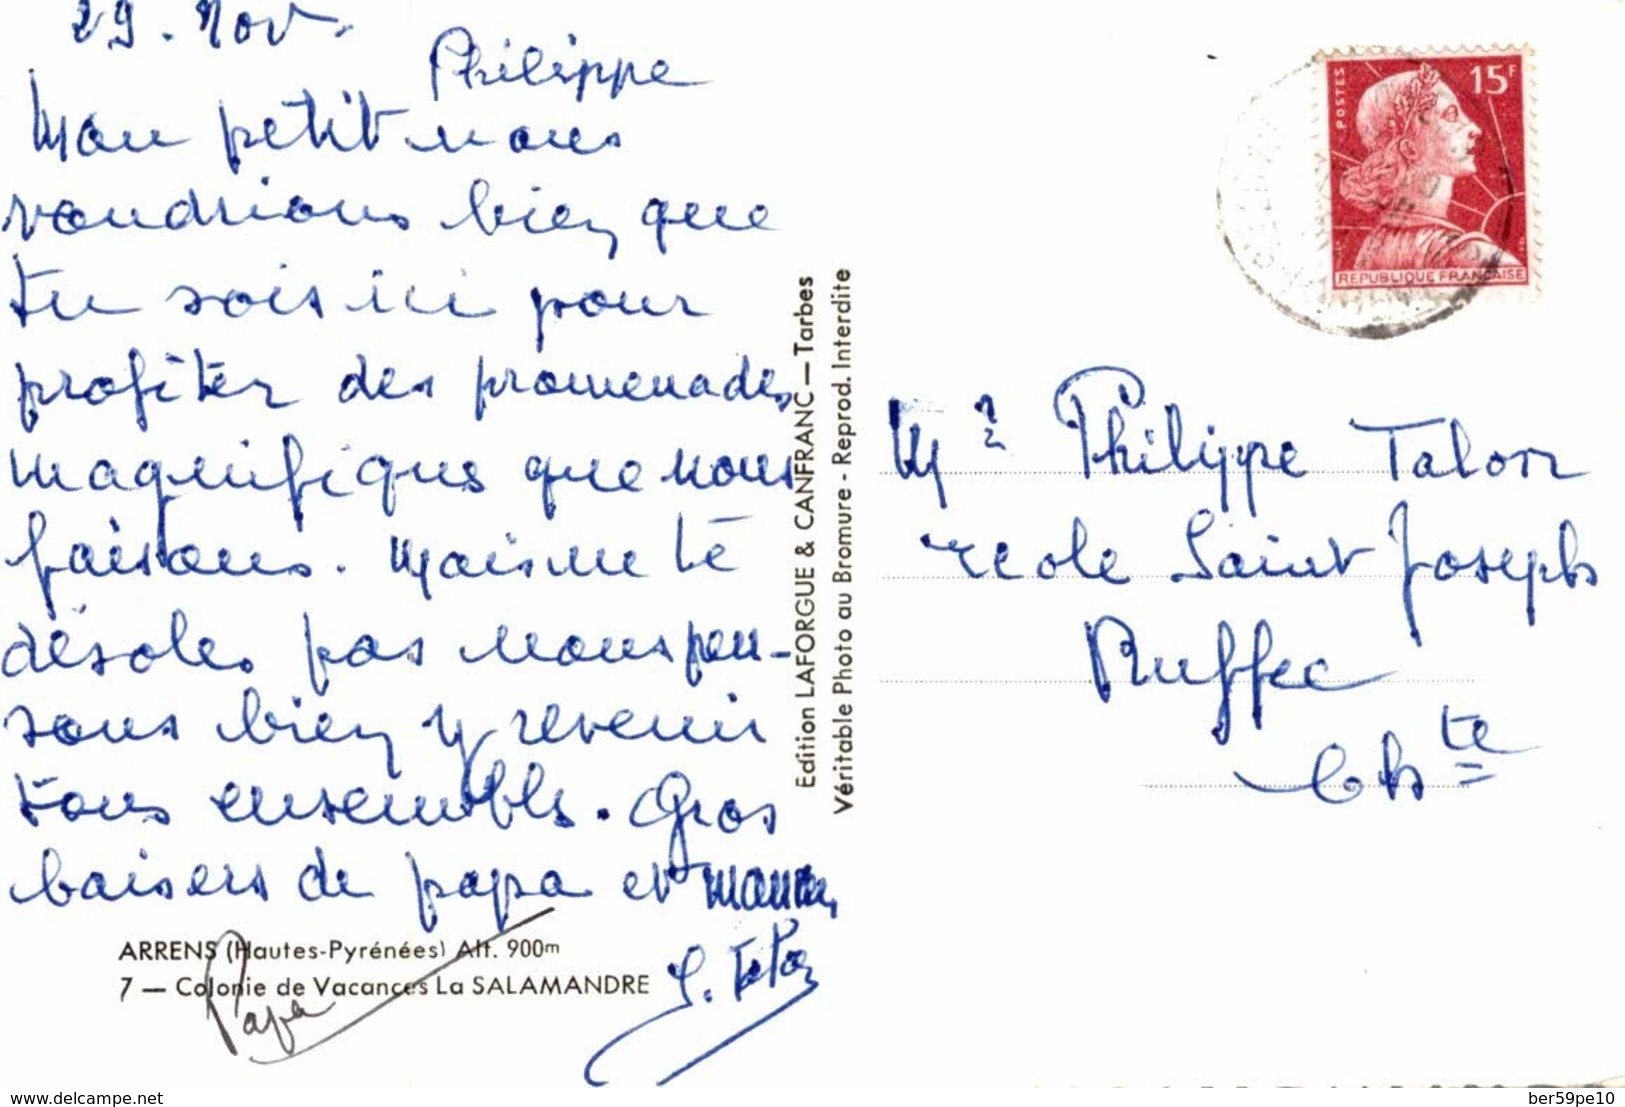 29. Nov.
Philippe
Mon petit nous
voudrions bien que
tu sois ici pour
profiter des promenades
magnifiques que nous
faisons. Mais ne te
désoles pas nous pen-
sons bien y revenir
tous ensemble. Gros
baisers de papa et maman
Papa
ARRENS (Hautes-Pyrénées) Alt. 900m
7 — Colonie de Vacances La SALAMANDRE
Edition LAFORGUE & CANFRANC — Tarbes
Véritable Photo au Bromure - Reprod. Interdite
POSTES
15F
REPUBLIQUE FRANÇAISE
Mr Philippe Talon
école Saint Joseph
Ruffec
Chte
www.delcampe.net
ber59pe10